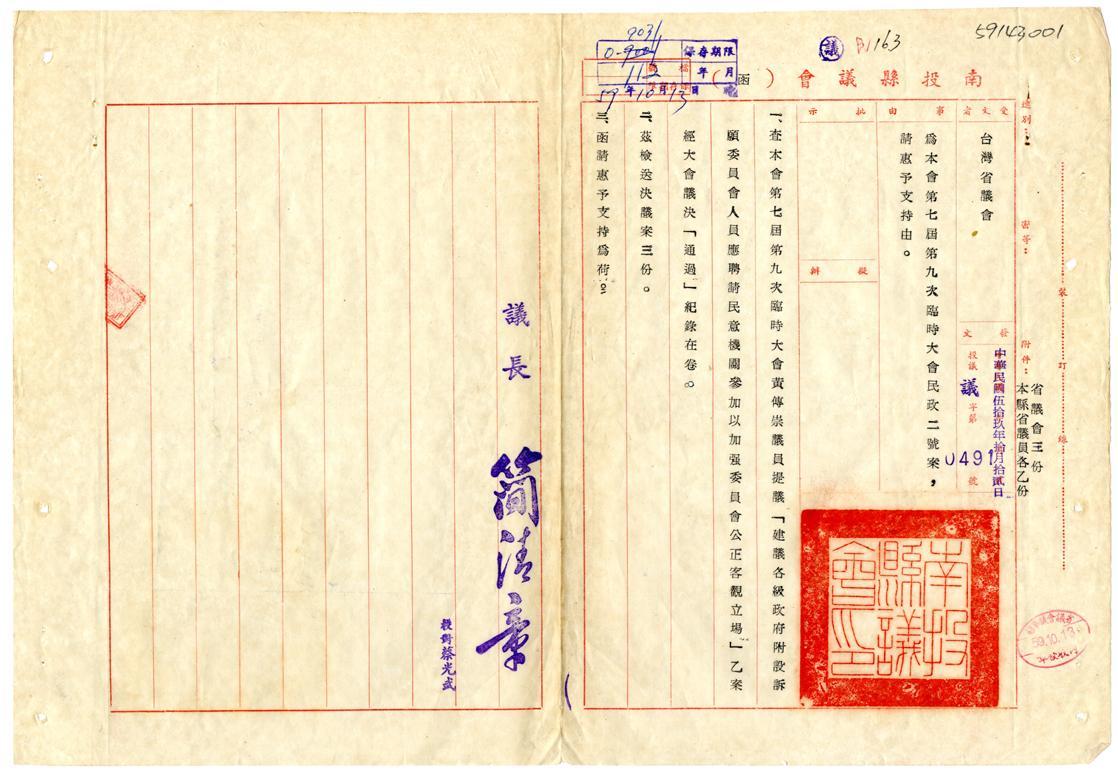 59143,001
議 B1163
9031
0-900
112
保存期限
年 月
59年10月13日
南投縣議會(函)
速別：
密等：
附件：
省議會三份
本縣省議員各乙份
裝
訂
線
受文者
台灣省議會
發文
中華民國伍拾玖年拾月拾貳日
投議議字第0491號
事由
為本會第七屆第九次臨時大會民政二號案，
請惠予支持由。
批示
擬辦
南投縣議會印
一、查本會第七屆第九次臨時大會黃傳崇議員提議「建議各級政府附設訴
願委員會人員應聘請民意機關參加以加强委員會公正客觀立場」乙案
經大會議決「通過」紀錄在卷。
二、茲檢送決議案三份。
三、函請惠予支持為荷。
議長 簡清章
校對蔡光武
59.10.13